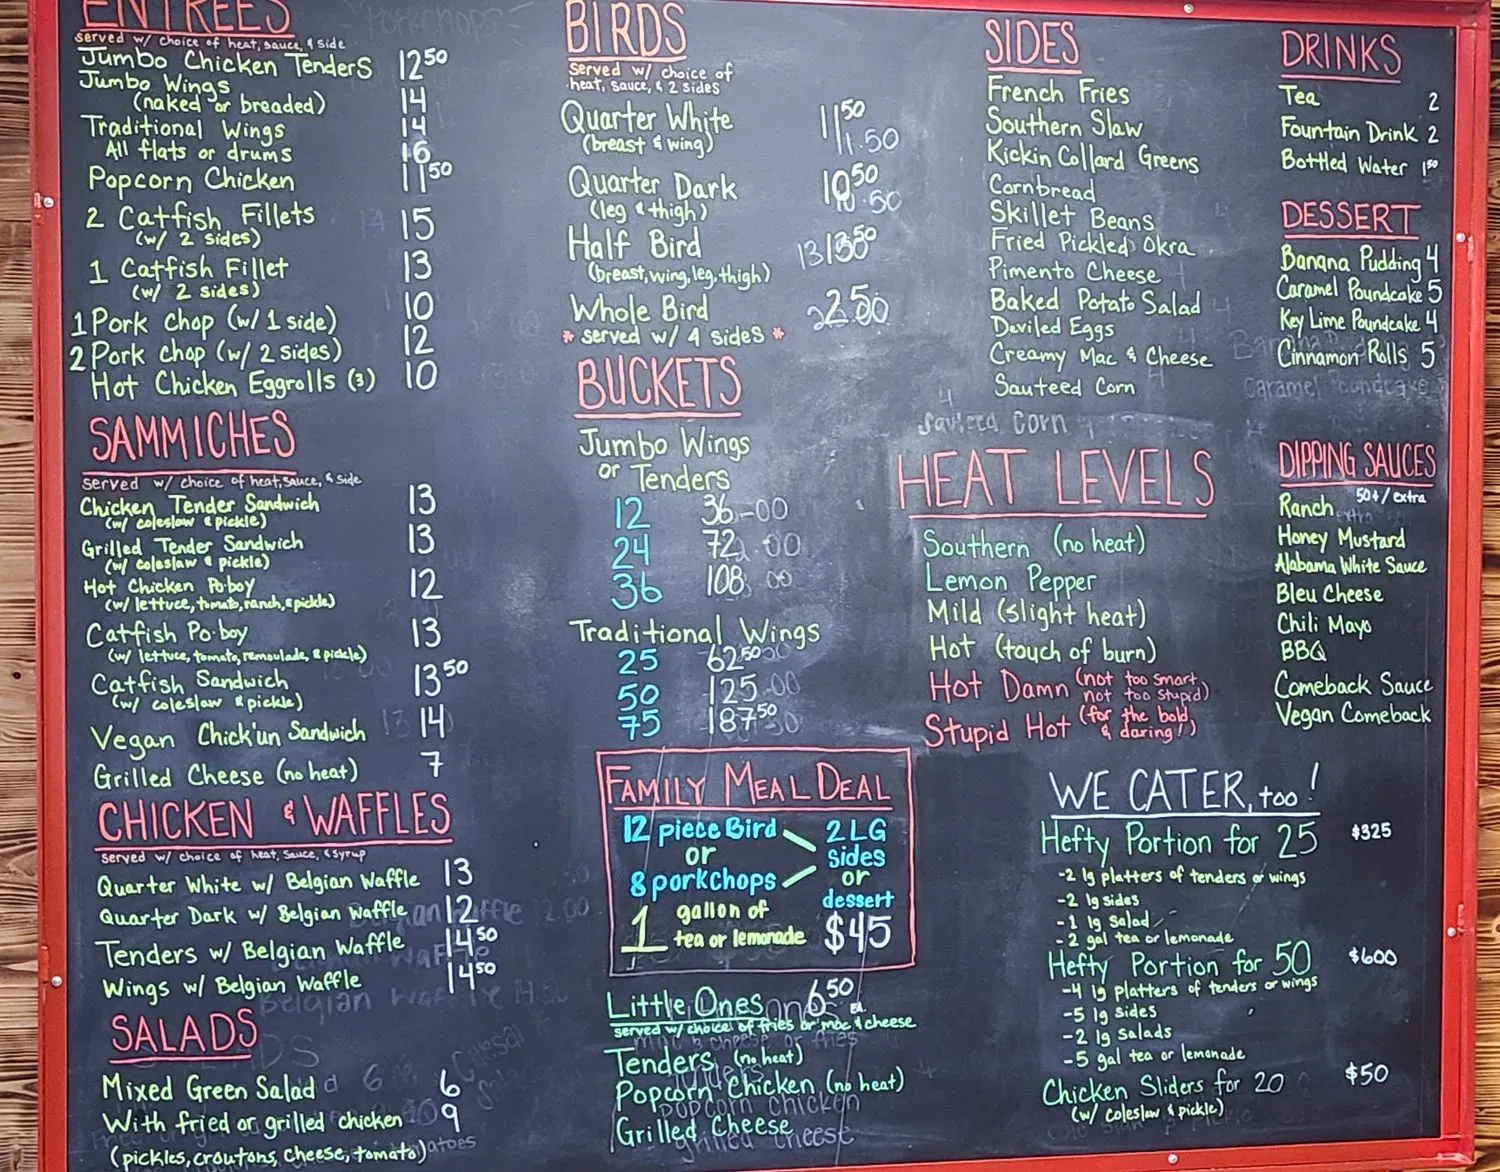 ENTREES
served w/ choice of heat, sauce, & side
Jumbo Chicken Tenders 12⁵⁰
Jumbo Wings
(naked or breaded) 14
Traditional Wings 14
All flats or drums 16
Popcorn Chicken 11⁵⁰
2 Catfish Fillets 15
(w/ 2 sides)
1 Catfish Fillet 13
(w/ 2 sides)
1 Pork chop (w/ 1 side) 10
2 Pork chop (w/ 2 sides) 12
Hot Chicken Eggrolls (3) 10
SAMMICHES
served w/ choice of heat, sauce, & side
Chicken Tender Sandwich 13
(w/ coleslaw & pickle)
Grilled Tender Sandwich 13
(w/ coleslaw & pickle)
Hot Chicken Po·boy 12
(w/ lettuce, tomato, ranch, & pickle)
Catfish Po·boy 13
(w/ lettuce, tomato, remoulade, & pickle)
Catfish Sandwich 13⁵⁰
(w/ coleslaw & pickle)
Vegan Chick'un Sandwich 14
Grilled Cheese (no heat) 7
CHICKEN & WAFFLES
served w/ choice of heat, sauce, & syrup
Quarter White w/ Belgian Waffle 13
Quarter Dark w/ Belgian Waffle 12
Tenders w/ Belgian Waffle 14⁵⁰
Wings w/ Belgian Waffle 14⁵⁰
SALADS
Mixed Green Salad 6
With fried or grilled chicken 9
(pickles, croutons, cheese, tomato)
BIRDS
Served w/ choice of
heat, sauce, & 2 sides
Quarter White 11⁵⁰
(breast & wing)
Quarter Dark 10⁵⁰
(leg & thigh)
Half Bird
(breast, wing, leg, thigh)
Whole Bird
* served w/ 4 sides *
BUCKETS
Jumbo Wings
or Tenders
12 36
24 72
36 108
Traditional Wings
25 62⁵⁰
50 125
75 187⁵⁰
FAMILY MEAL DEAL
12 piece Bird
or
8 porkchops
2 LG
sides
or
dessert
1 gallon of
tea or lemonade $45
Little Ones 6⁵⁰ EA.
served w/ choice of fries or mac & cheese
Tenders (no heat)
Popcorn Chicken (no heat)
Grilled Cheese
SIDES
French Fries
Southern Slaw
Kickin Collard Greens
Cornbread
Skillet Beans
Fried Pickled Okra
Pimento Cheese
Baked Potato Salad
Deviled Eggs
Creamy Mac & Cheese
Sauteed Corn
HEAT LEVELS
Southern (no heat)
Lemon Pepper
Mild (slight heat)
Hot (touch of burn)
Hot Damn (not too smart,
not too stupid)
Stupid Hot (for the bold
& daring!)
DRINKS
Tea 2
Fountain Drink 2
Bottled Water 1⁵⁰
DESSERT
Banana Pudding 4
Caramel Poundcake 5
Key Lime Poundcake 4
Cinnamon Rolls 5
DIPPING SAUCES
50¢/extra
Ranch
Honey Mustard
Alabama White Sauce
Bleu Cheese
Chili Mayo
BBQ
Comeback Sauce
Vegan Comeback
WE CATER, too!
Hefty Portion for 25 $325
-2 lg platters of tenders or wings
-2 lg sides
-1 lg salad
-2 gal tea or lemonade
Hefty Portion for 50 $600
-4 lg platters of tenders or wings
-5 lg sides
-2 lg salads
-5 gal tea or lemonade
Chicken Sliders for 20 $50
(w/ coleslaw & pickle)